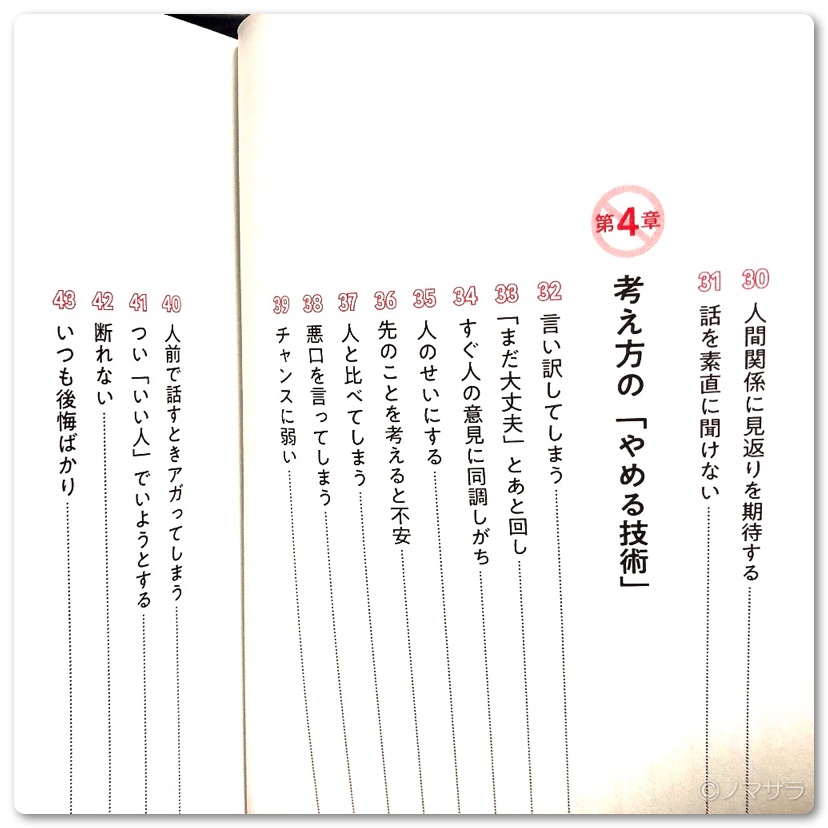 30 人間関係に見返りを期待する
31 話を素直に聞けない
第4章
考え方の「やめる技術」
32 言い訳してしまう
33 「まだ大丈夫」とあと回し
34 すぐ人の意見に同調しがち
35 人のせいにする
36 先のことを考えると不安
37 人と比べてしまう
38 悪口を言ってしまう
39 チャンスに弱い
40 人前で話すときアガってしまう
41 つい「いい人」でいようとする
42 断れない
43 いつも後悔ばかり
©ノマサラ